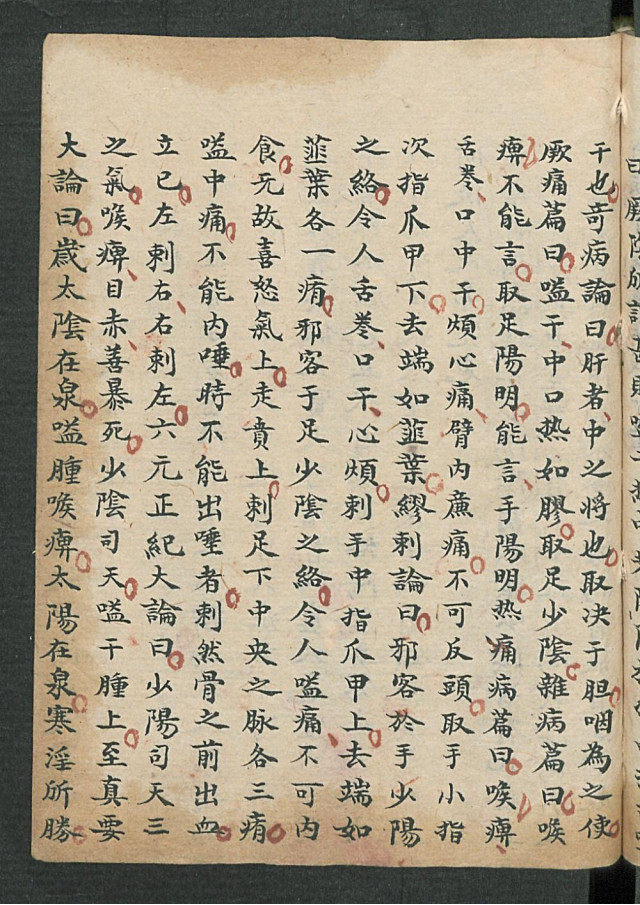 曰厥陰所謂甚則
干也奇病論曰肝者中之将也取决于胆咽為之使
厥痛篇曰嗌干中口热如膠取足少陰雜病篇曰喉
痺不能言取足陽明能言手陽明热痛病篇曰喉痺
舌卷口中干煩心痛臂内廉痛不可反頭取手小指
次指爪甲下去端如韮葉繆刺論曰邪客於手少陽
之絡令人舌卷口干心煩刺手中指爪甲上去端如
韮葉各一痏邪客于足少陰之絡令人嗌痛不可内
食无故喜怒氣上走賁上刺足下中央之脉各三痏
嗌中痛不能内唾時不能出唾者刺然骨之前出血
立已左刺右右刺左六元正紀大論曰少陽司天三
之氣喉痺目赤善暴死少陰司天嗌干腫上至真要
大論曰歲太陰在泉嗌腫喉痺太陽在泉寒淫所勝